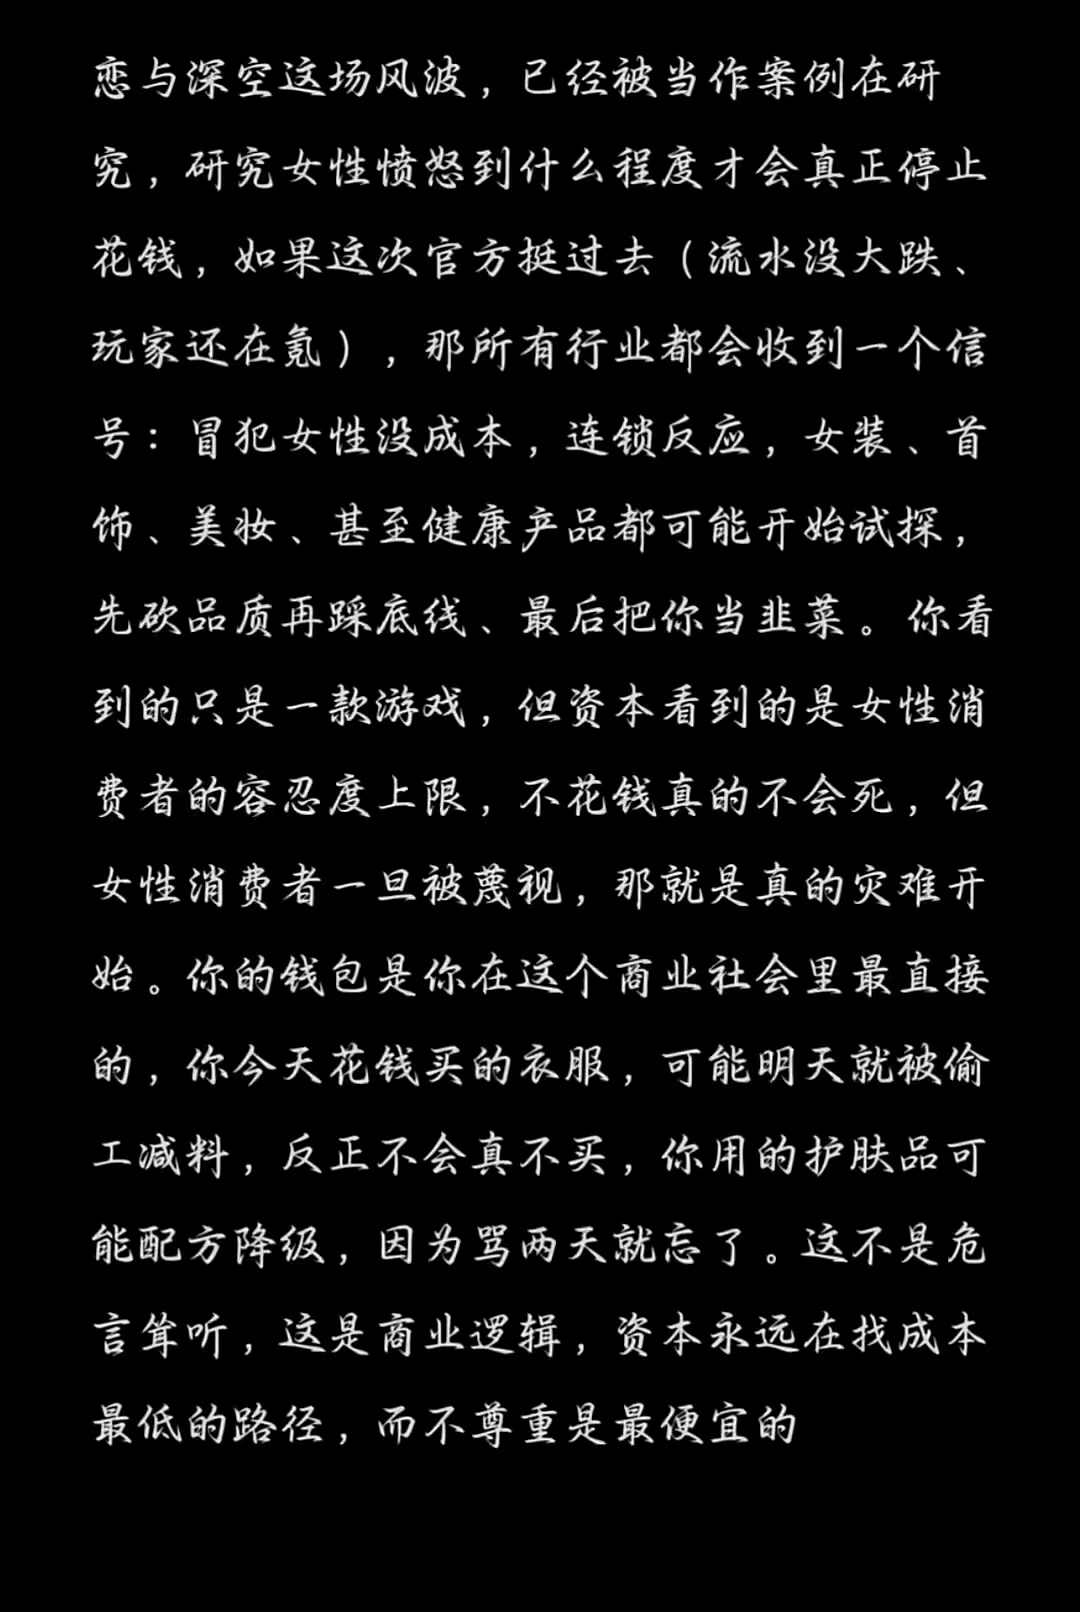 恋与深空这场风波，已经被当作案例在研
究，研究女性愤怒到什么程度才会真正停止
花钱，如果这次官方挺过去（流水没大跌、
玩家还在氪），那所有行业都会收到一个信
号：冒犯女性没成本，连锁反应，女装、首
饰、美妆、甚至健康产品都可能开始试探，
先砍品质再踩底线、最后把你当韭菜。你看
到的只是一款游戏，但资本看到的是女性消
费者的容忍度上限，不花钱真的不会死，但
女性消费者一旦被蔑视，那就是真的灾难开
始。你的钱包是你在这个商业社会里最直接
的，你今天花钱买的衣服，可能明天就被偷
工减料，反正不会真不买，你用的护肤品可
能配方降级，因为骂两天就忘了。这不是危
言耸听，这是商业逻辑，资本永远在找成本
最低的路径，而不尊重是最便宜的